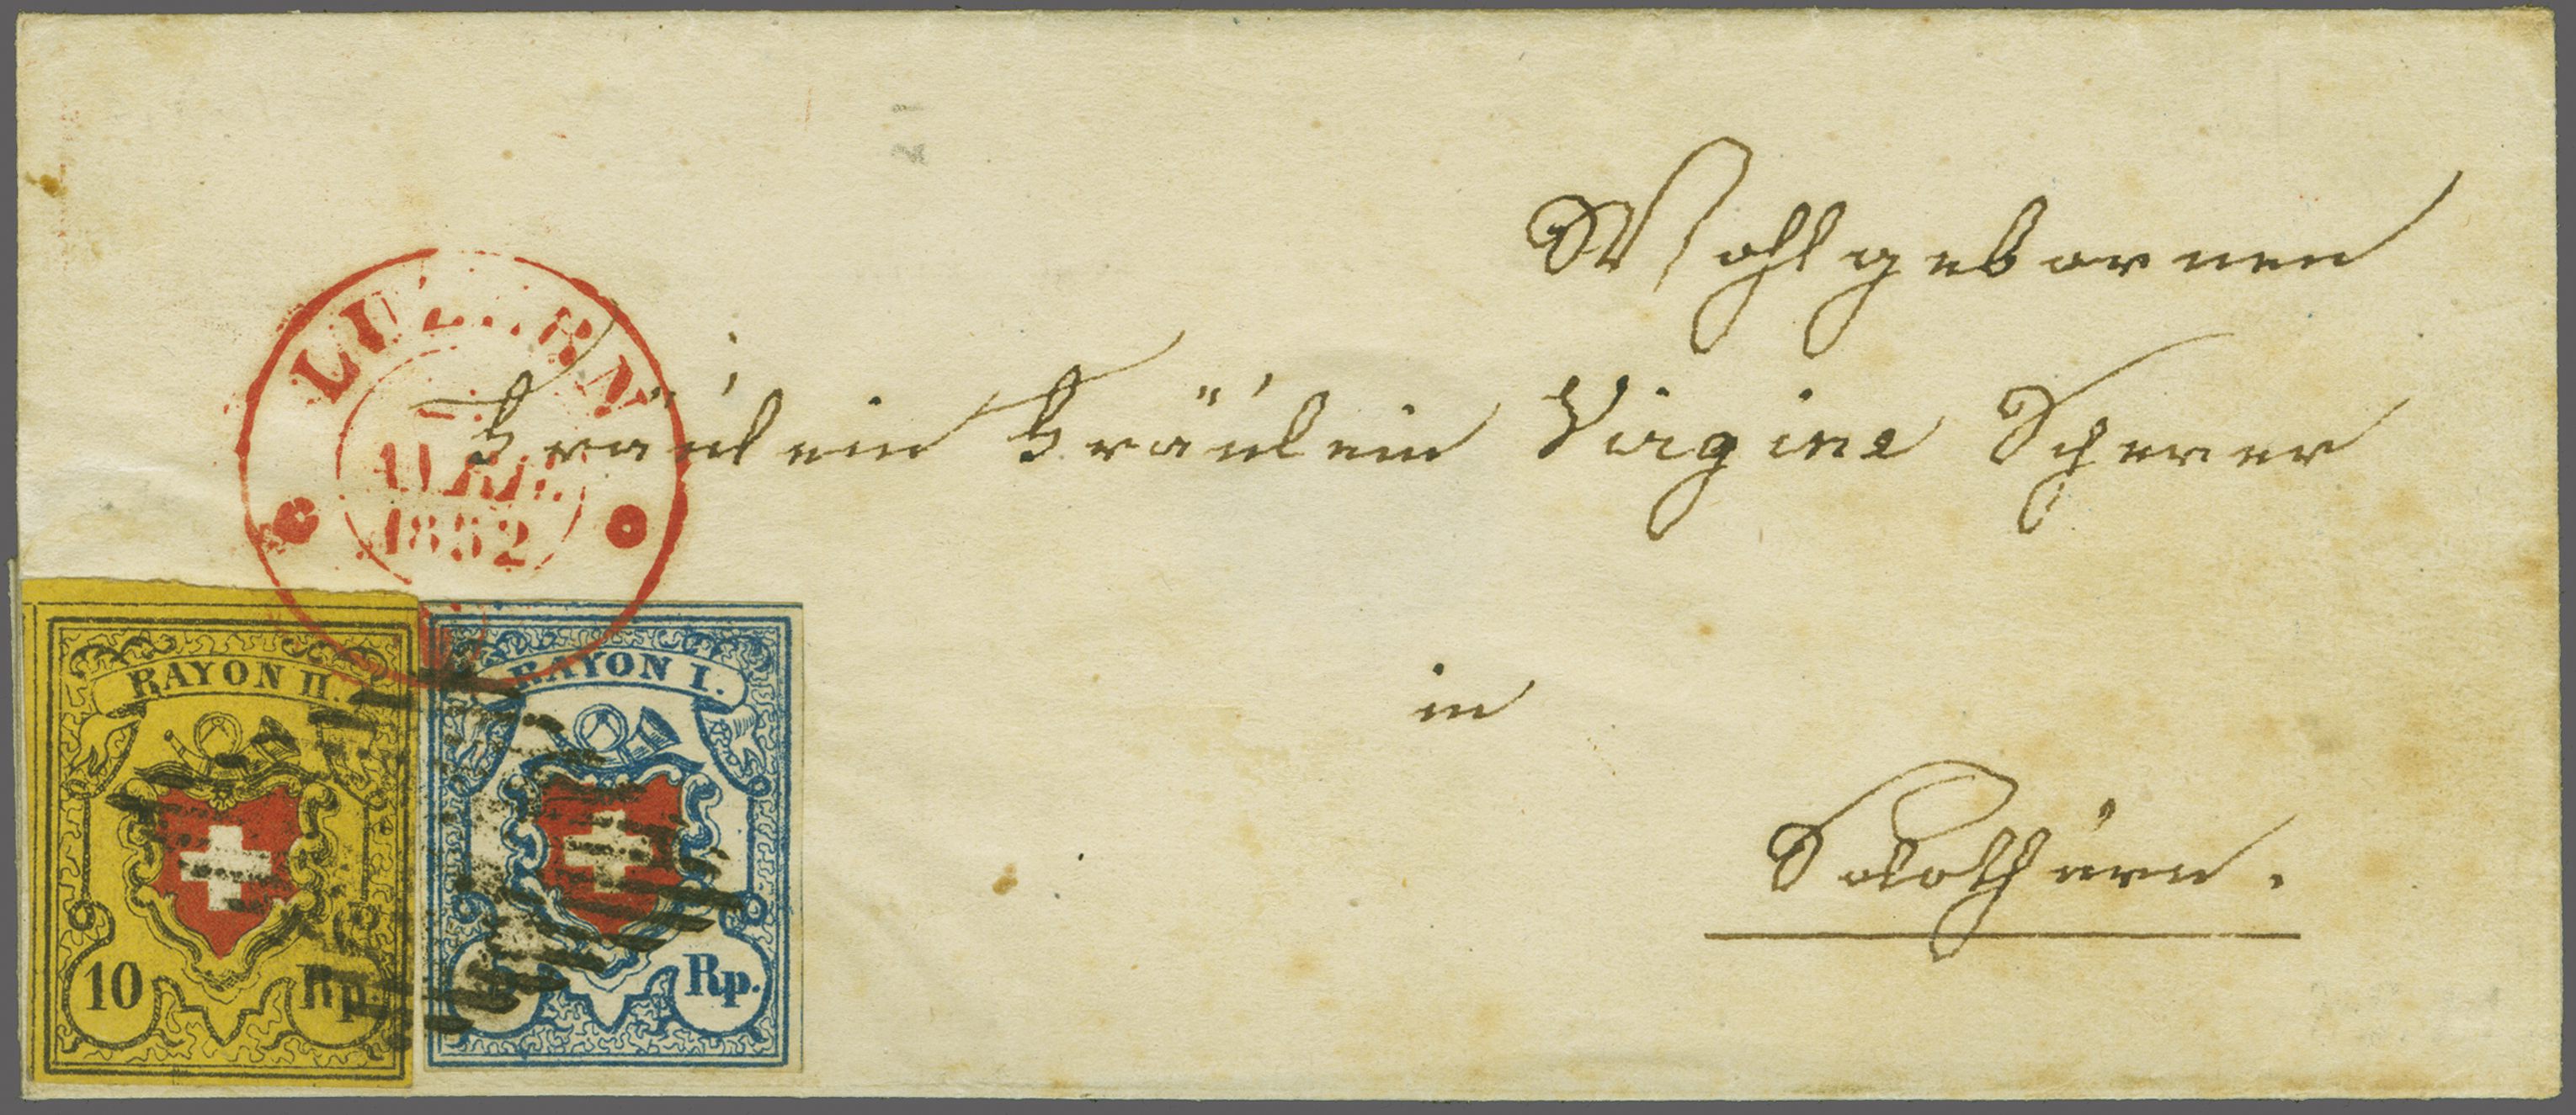 Wohlgebornen
Fräulein Fräulein Virgine Scherer
in
Solothurn.
LUZERN
1852
RAYON II.
10 Rp.
RAYON I.
Rp.